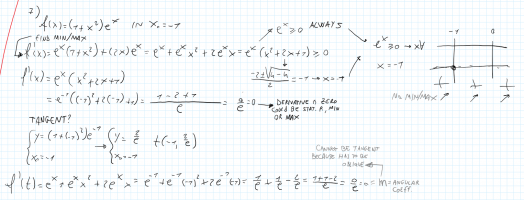 7)
f(x)=(1+x²)e^x IN X₀=-1
FIND MIN/MAX
f'(x)=e^x(1+x²)+(2x)e^x = e^x+e^x x²+2e^x x = e^x(x²+2x+1) ≥ 0
e^x ≥ 0 ALWAYS
(-2±√4-4)/2 = -1 → x=-1
e^x ≥ 0 → x∀
x=-1
-1 0
+ + +
NO MIN/MAX
f'(x)=e^x(x²+2x+1)
=e^-1((-1)²+2(-1)+1) = (1-2+1)/e = 0/e = 0 → DERIVATIVE A ZERO
COULD BE STAT. P., MIN
OR MAX
TANGENT?
{y=(1+(-1)²)e^-1 → {y=2/e t(-1, 2/e)
x₀=-1 x₀=-1
CANNOT BE TANGENT
BECAUSE HAS TO BE
f'(t)=e^x+e^x x²+2e^x x = e^-1+e^-1(-1)²+2e^-1(-1) = 1/e+1/e-2/e = (1+1-2)/e = 0/e = 0 = m = ANGULAR
COEFF.